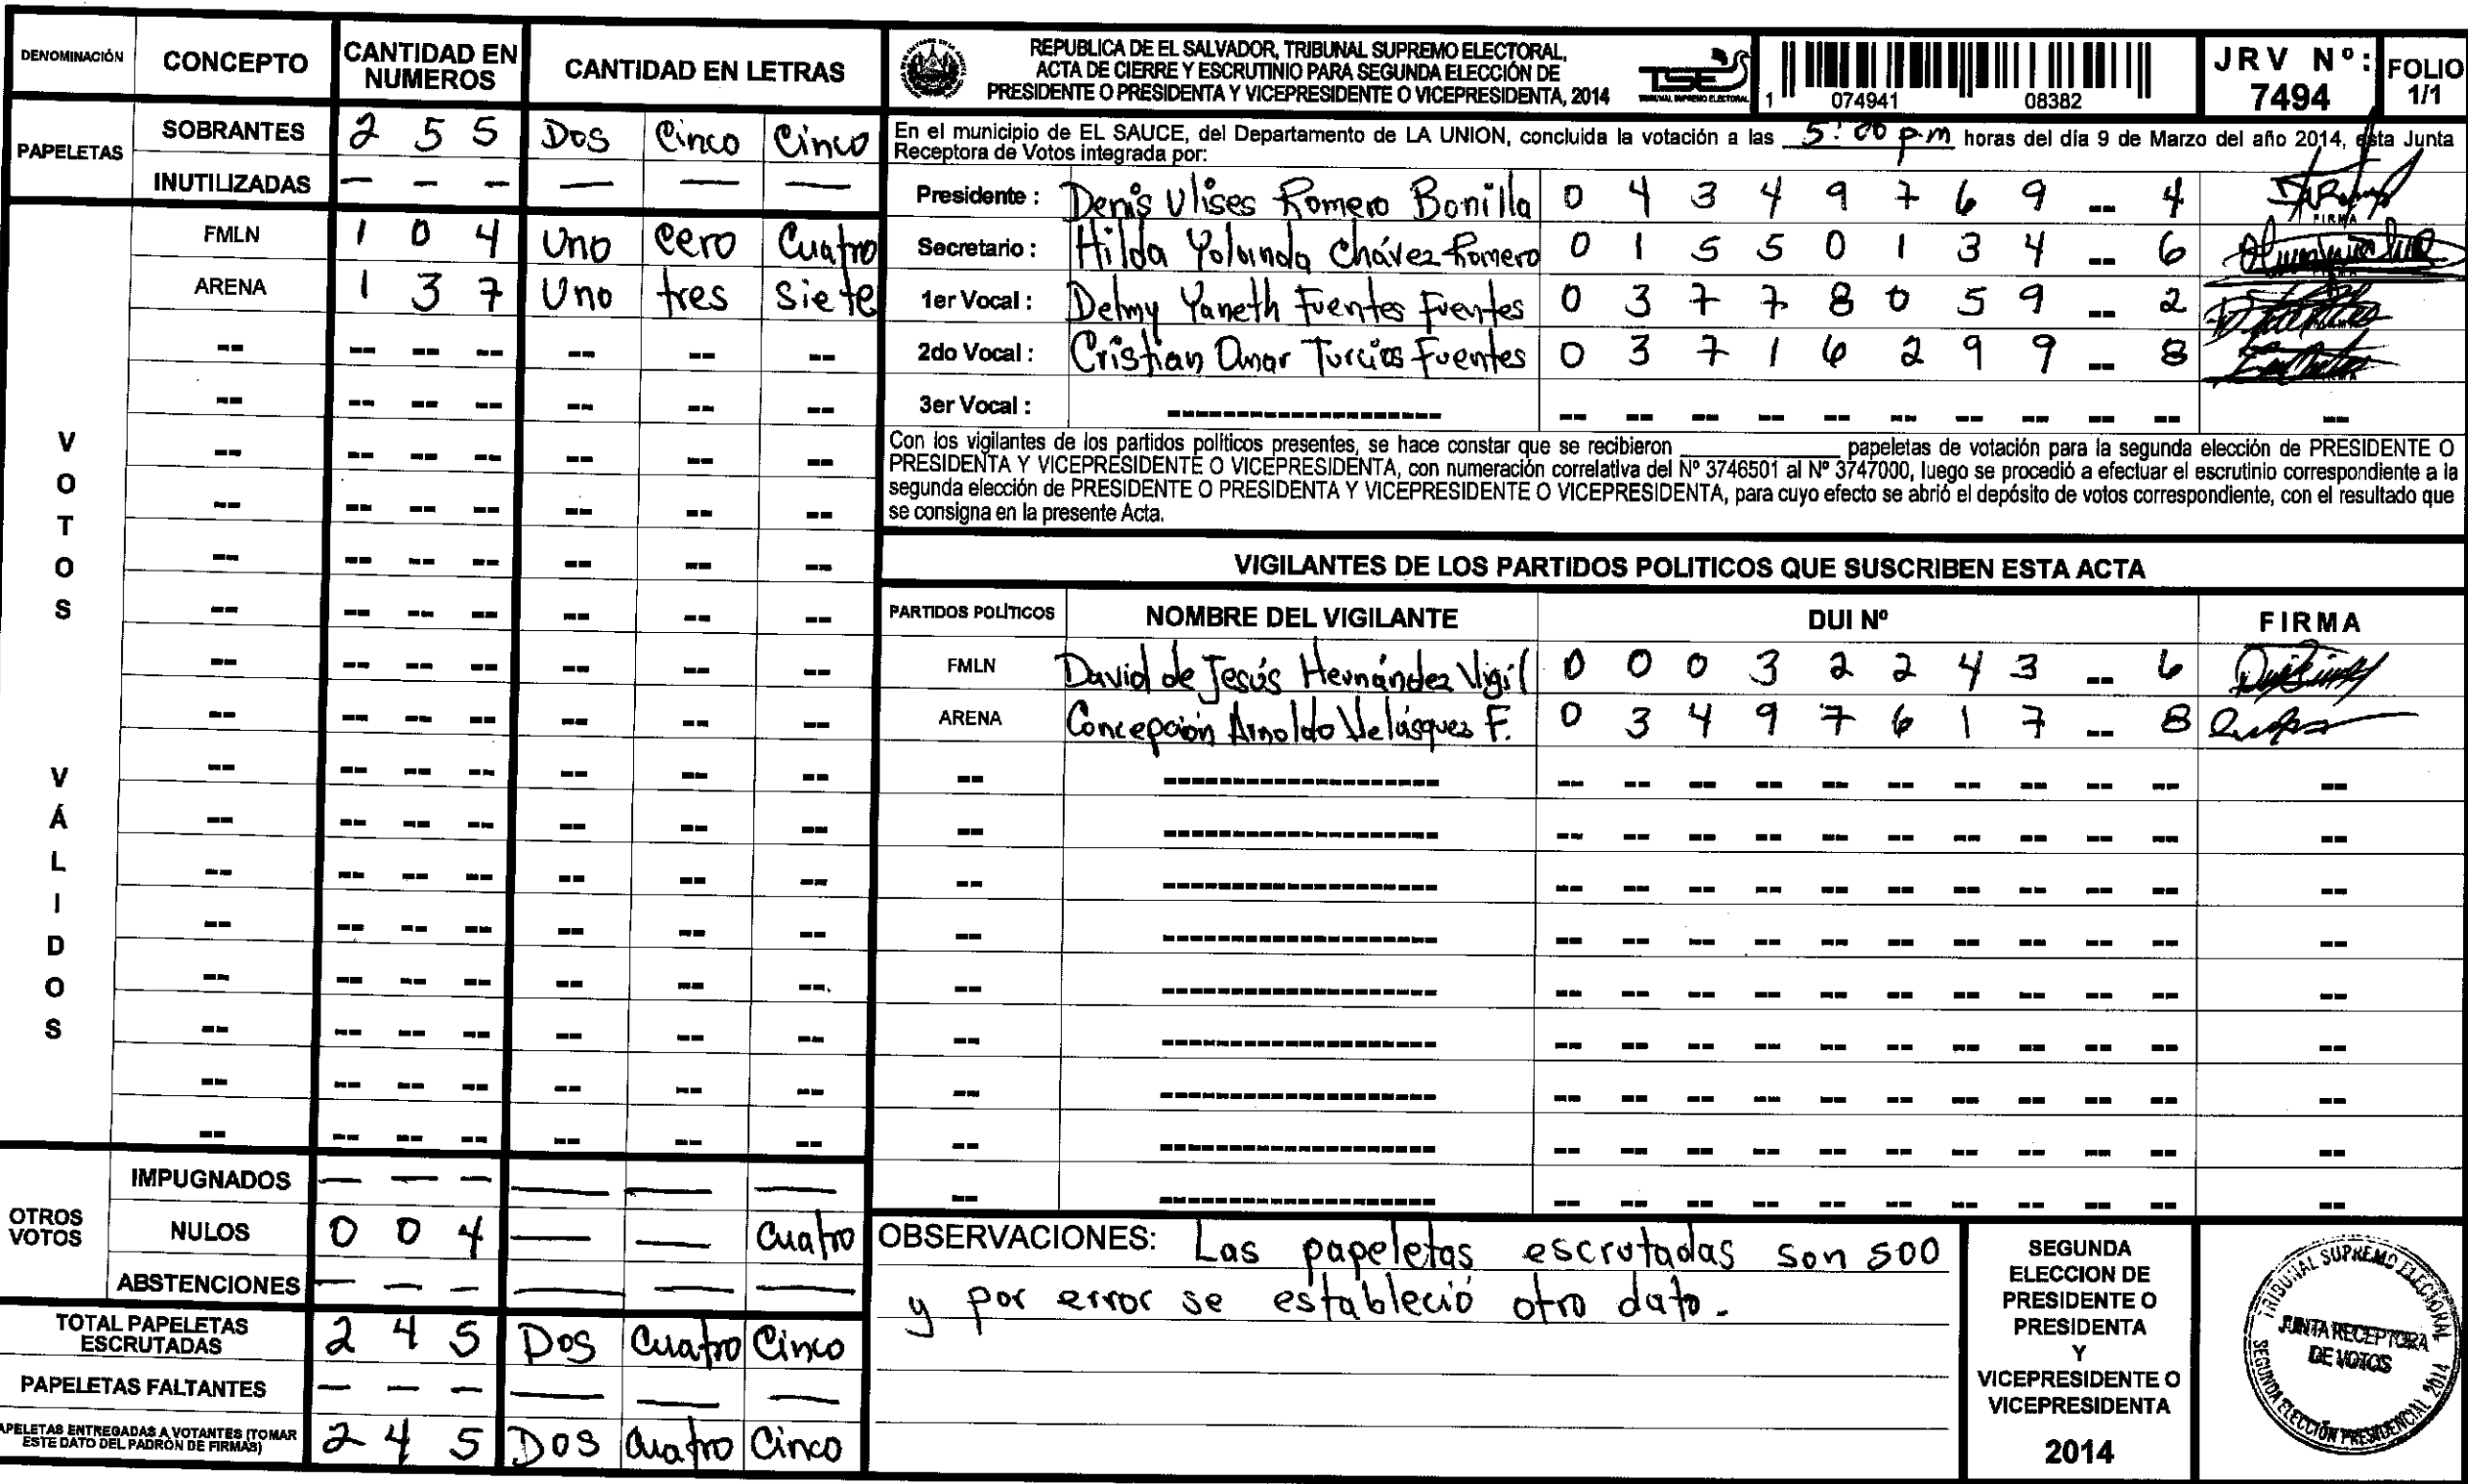 DENOMINACIÓN CONCEPTO CANTIDAD EN NUMEROS CANTIDAD EN LETRAS
PAPELETAS
SOBRANTES 2 5 5 Dos Cinco Cinco
INUTILIZADAS — — — — — —
VOTOS VÁLIDOS
FMLN 1 0 4 Uno cero Cuatro
ARENA 1 3 7 Uno tres siete
OTROS VOTOS
IMPUGNADOS — — — — — —
NULOS 0 0 4 — — Cuatro
ABSTENCIONES — — — — — —
TOTAL PAPELETAS ESCRUTADAS 2 4 5 Dos Cuatro Cinco
PAPELETAS FALTANTES — — — — — —
APELETAS ENTREGADAS A VOTANTES (TOMAR ESTE DATO DEL PADRÓN DE FIRMAS) 2 4 5 Dos Cuatro Cinco
REPUBLICA DE EL SALVADOR, TRIBUNAL SUPREMO ELECTORAL,
ACTA DE CIERRE Y ESCRUTINIO PARA SEGUNDA ELECCIÓN DE
PRESIDENTE O PRESIDENTA Y VICEPRESIDENTE O VICEPRESIDENTA, 2014
TSE
TRIBUNAL SUPREMO ELECTORAL
1 074941 08382
JRV Nº: 7494
FOLIO 1/1
En el municipio de EL SAUCE, del Departamento de LA UNION, concluida la votación a las 5:00 p.m horas del día 9 de Marzo del año 2014, esta Junta
Receptora de Votos integrada por:
Presidente : Denis Ulises Romero Bonilla 0 4 3 4 9 7 6 9 -- 4
FIRMA
Secretario : Hilda Yolanda Chávez Romero 0 1 5 5 0 1 3 4 -- 6
1er Vocal : Delmy Yaneth Fuentes Fuentes 0 3 7 7 8 0 5 9 -- 2
2do Vocal : Cristian Omar Turcios Fuentes 0 3 7 1 6 2 9 9 -- 8
3er Vocal : -------------------- -- -- -- -- -- -- -- -- -- -- --
Con los vigilantes de los partidos políticos presentes, se hace constar que se recibieron ________ papeletas de votación para la segunda elección de PRESIDENTE O
PRESIDENTA Y VICEPRESIDENTE O VICEPRESIDENTA, con numeración correlativa del Nº 3746501 al Nº 3747000, luego se procedió a efectuar el escrutinio correspondiente a la
segunda elección de PRESIDENTE O PRESIDENTA Y VICEPRESIDENTE O VICEPRESIDENTA, para cuyo efecto se abrió el depósito de votos correspondiente, con el resultado que
se consigna en la presente Acta.
VIGILANTES DE LOS PARTIDOS POLITICOS QUE SUSCRIBEN ESTA ACTA
PARTIDOS POLÍTICOS NOMBRE DEL VIGILANTE DUI Nº FIRMA
FMLN David de Jesús Hernández Vigil 0 0 0 3 2 2 4 3 -- 6
ARENA Concepción Arnoldo Velásquez F. 0 3 4 9 7 6 1 7 -- 8
OBSERVACIONES: Las papeletas escrutadas son 500
y por error se estableció otro dato.
SEGUNDA
ELECCION DE
PRESIDENTE O
PRESIDENTA
Y
VICEPRESIDENTE O
VICEPRESIDENTA
2014
TRIBUNAL SUPREMO ELECTORAL
JUNTA RECEPTORA
DE VOTOS
SEGUNDA ELECCIÓN PRESIDENCIAL 2014